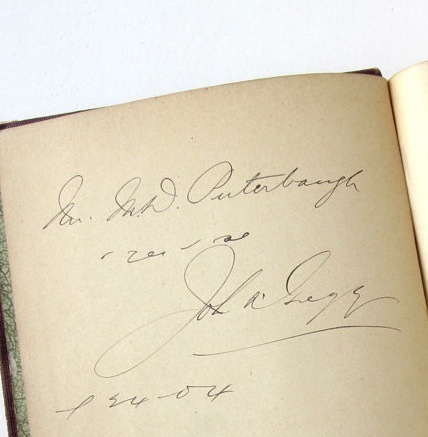 Mr. M.D. Puterbaugh
John R Gregg
1-24-04